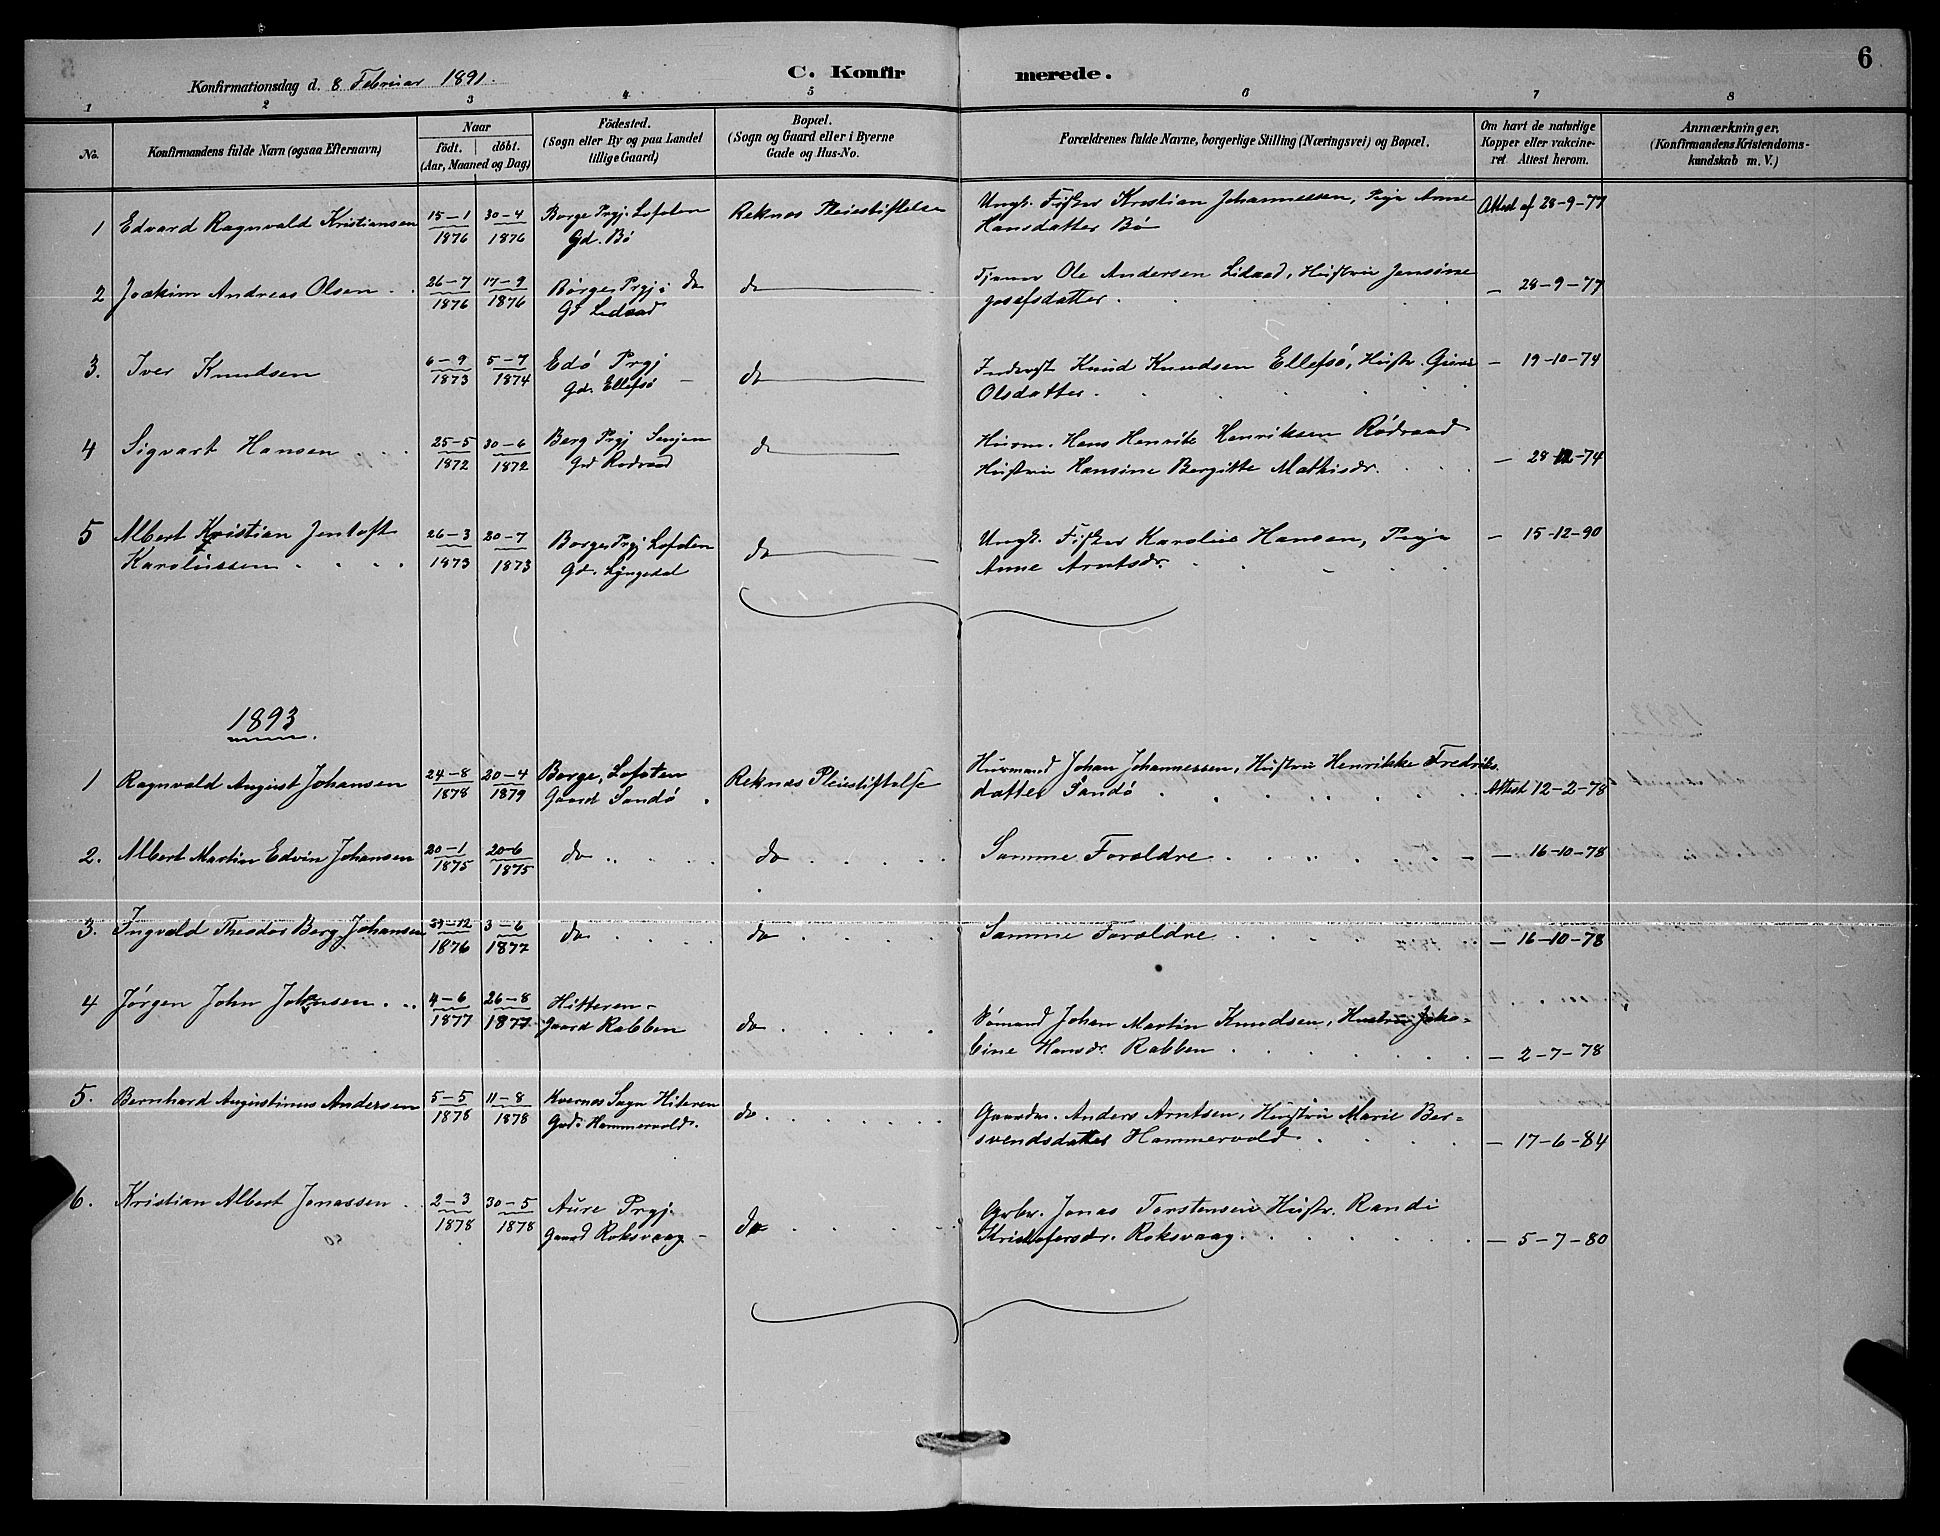 6
Konfirmationsdag d. 8 Februar 1891.
C. Konfirmerede.
1 2 3 4 5 6 7 8
No.
Konfirmandens fulde Navn (ogsaa Efternavn)
Naar
födt. döbt.
(Aar, Maaned og Dag)
Födested.
(Sogn eller By og paa Landet
tillige Gaard)
Bopæl.
(Sogn og Gaard eller i Byerne
Gade og Hus-No.
Forældrenes fulde Navne, borgerlige Stilling (Næringsvei) og Bopæl.
Om havt de naturlige
Kopper eller vakcine-
ret. Attest herom.
Anmærkninger.
(Konfirmandens Kristendoms-
kundskab m. V.)
1 Edvard Ragnvald Kristiansen 15-1 1876 30-4 1876 Borge Prgj. Lofoten
Gd. Bø
Reknæs Pleiestiftelse
Ungk. Fisker Kristian Johannessen, Pige Anne
Hansdatter Bø
Attest af 28-9-77
2 Joakim Andreas Olsen 26-7 1876 17-9 1876 Borge Prgj. do
Gd Lidaad
do
Ole Andersen Lidaad, Hustru Jensine
Josefsdatter
- 28-9-77
3. Iver Knudsen 6-9 1873 5-7 1874 Edö Prgj
Gd. Ellefsö -
do
Inderst Knud Knudsen Ellefsö, Hustr.
Olsdatter.
- 19-10-74
4 Sigvart Hansen 25-5 1872 30-6 1872 Berg Prgj Senjen
Grd Rodraad
do
Husm. Hans Henrik Henriksen Rödraad
Hustru Hansine Bergitte Mathisdr.
- 28-12-74
5 Albert Kristian Jentoft
Karolüssen
26-3 1873 20-7 1873 Borge Prgj Lofoten
Gd. Lyngedal
do
Ungk. Fisker Karolüs Hansen, Pige
Anne Arntsdr.
- 15-12-90
1893
1 Ragnvald August Johansen 24-8 1878 20-4 1879 Borge, Lofoten
Gaard Sandö
Reknæs Pleiestiftelse
Husmand Johan Johannessen, Hustru Henrikke Fredriks
datter Sandö
Attest 12-2-78
2. Albert Martin Edvin Johansen 20-1 1875 20-6 1875 do do Samme Forældre - 16-10-78
3. Ingvald Theodor Berg Johansen 29-12 1876 3-6 1877 do do Samme Forældre - 16-10-78
4 Jørgen John Johnsen 4-6 1877 26-8 1877 Hitteren -
Gaard Rabben
do
Sömand Johan Martin Knudsen, Hustru Jako-
bine Hansdr. Rabben
- 2-7-78
5. Bernhard Augustinus Andersen 5-5 1878 11-8 1878 Kvernæs Sogn Hiteren
Gd. Hammervold.
do
Gaardm. Anders Arntsen, Hustru Marie Ber-
svendsdatter Hammervold
- 17-6-84
6. Kristian Albert Jonassen 2-3 1878 30-5 1878 Aure Prgj.
Gaard Roksvaag -
do
Gbr. Jonas Torstensen Hustr. Randi
Kristofersdr. Roksvaag.
- 5-7-80